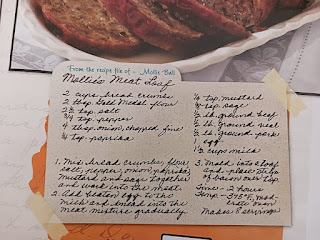 From the recipe file of - Mollie Ball
Mollie's Meat Loaf
2 cups bread crumbs
2 tbsp. Gold Medal flour
2 tsp. salt
1/4 tsp. pepper
4 tbsp. onion, chopped fine
1/4 tsp. paprika
1/4 tsp. mustard
1/4 tsp. sage
1/2 lb. ground beef
1/2 lb. ground veal
1/2 lb. ground pork
1 egg
1 1/2 cups milk
1. Mix bread crumbs, flour,
salt, pepper, onion, paprika,
mustard and sage together
and work into the meat.
2. Add beaten egg to the
milk and knead into the
meat mixture gradually.
3. Mold into a loaf
and place strips
of bacon over top.
Time - 2 hours
Temp. - 375°F, mod-
erate oven
Makes 8 servings